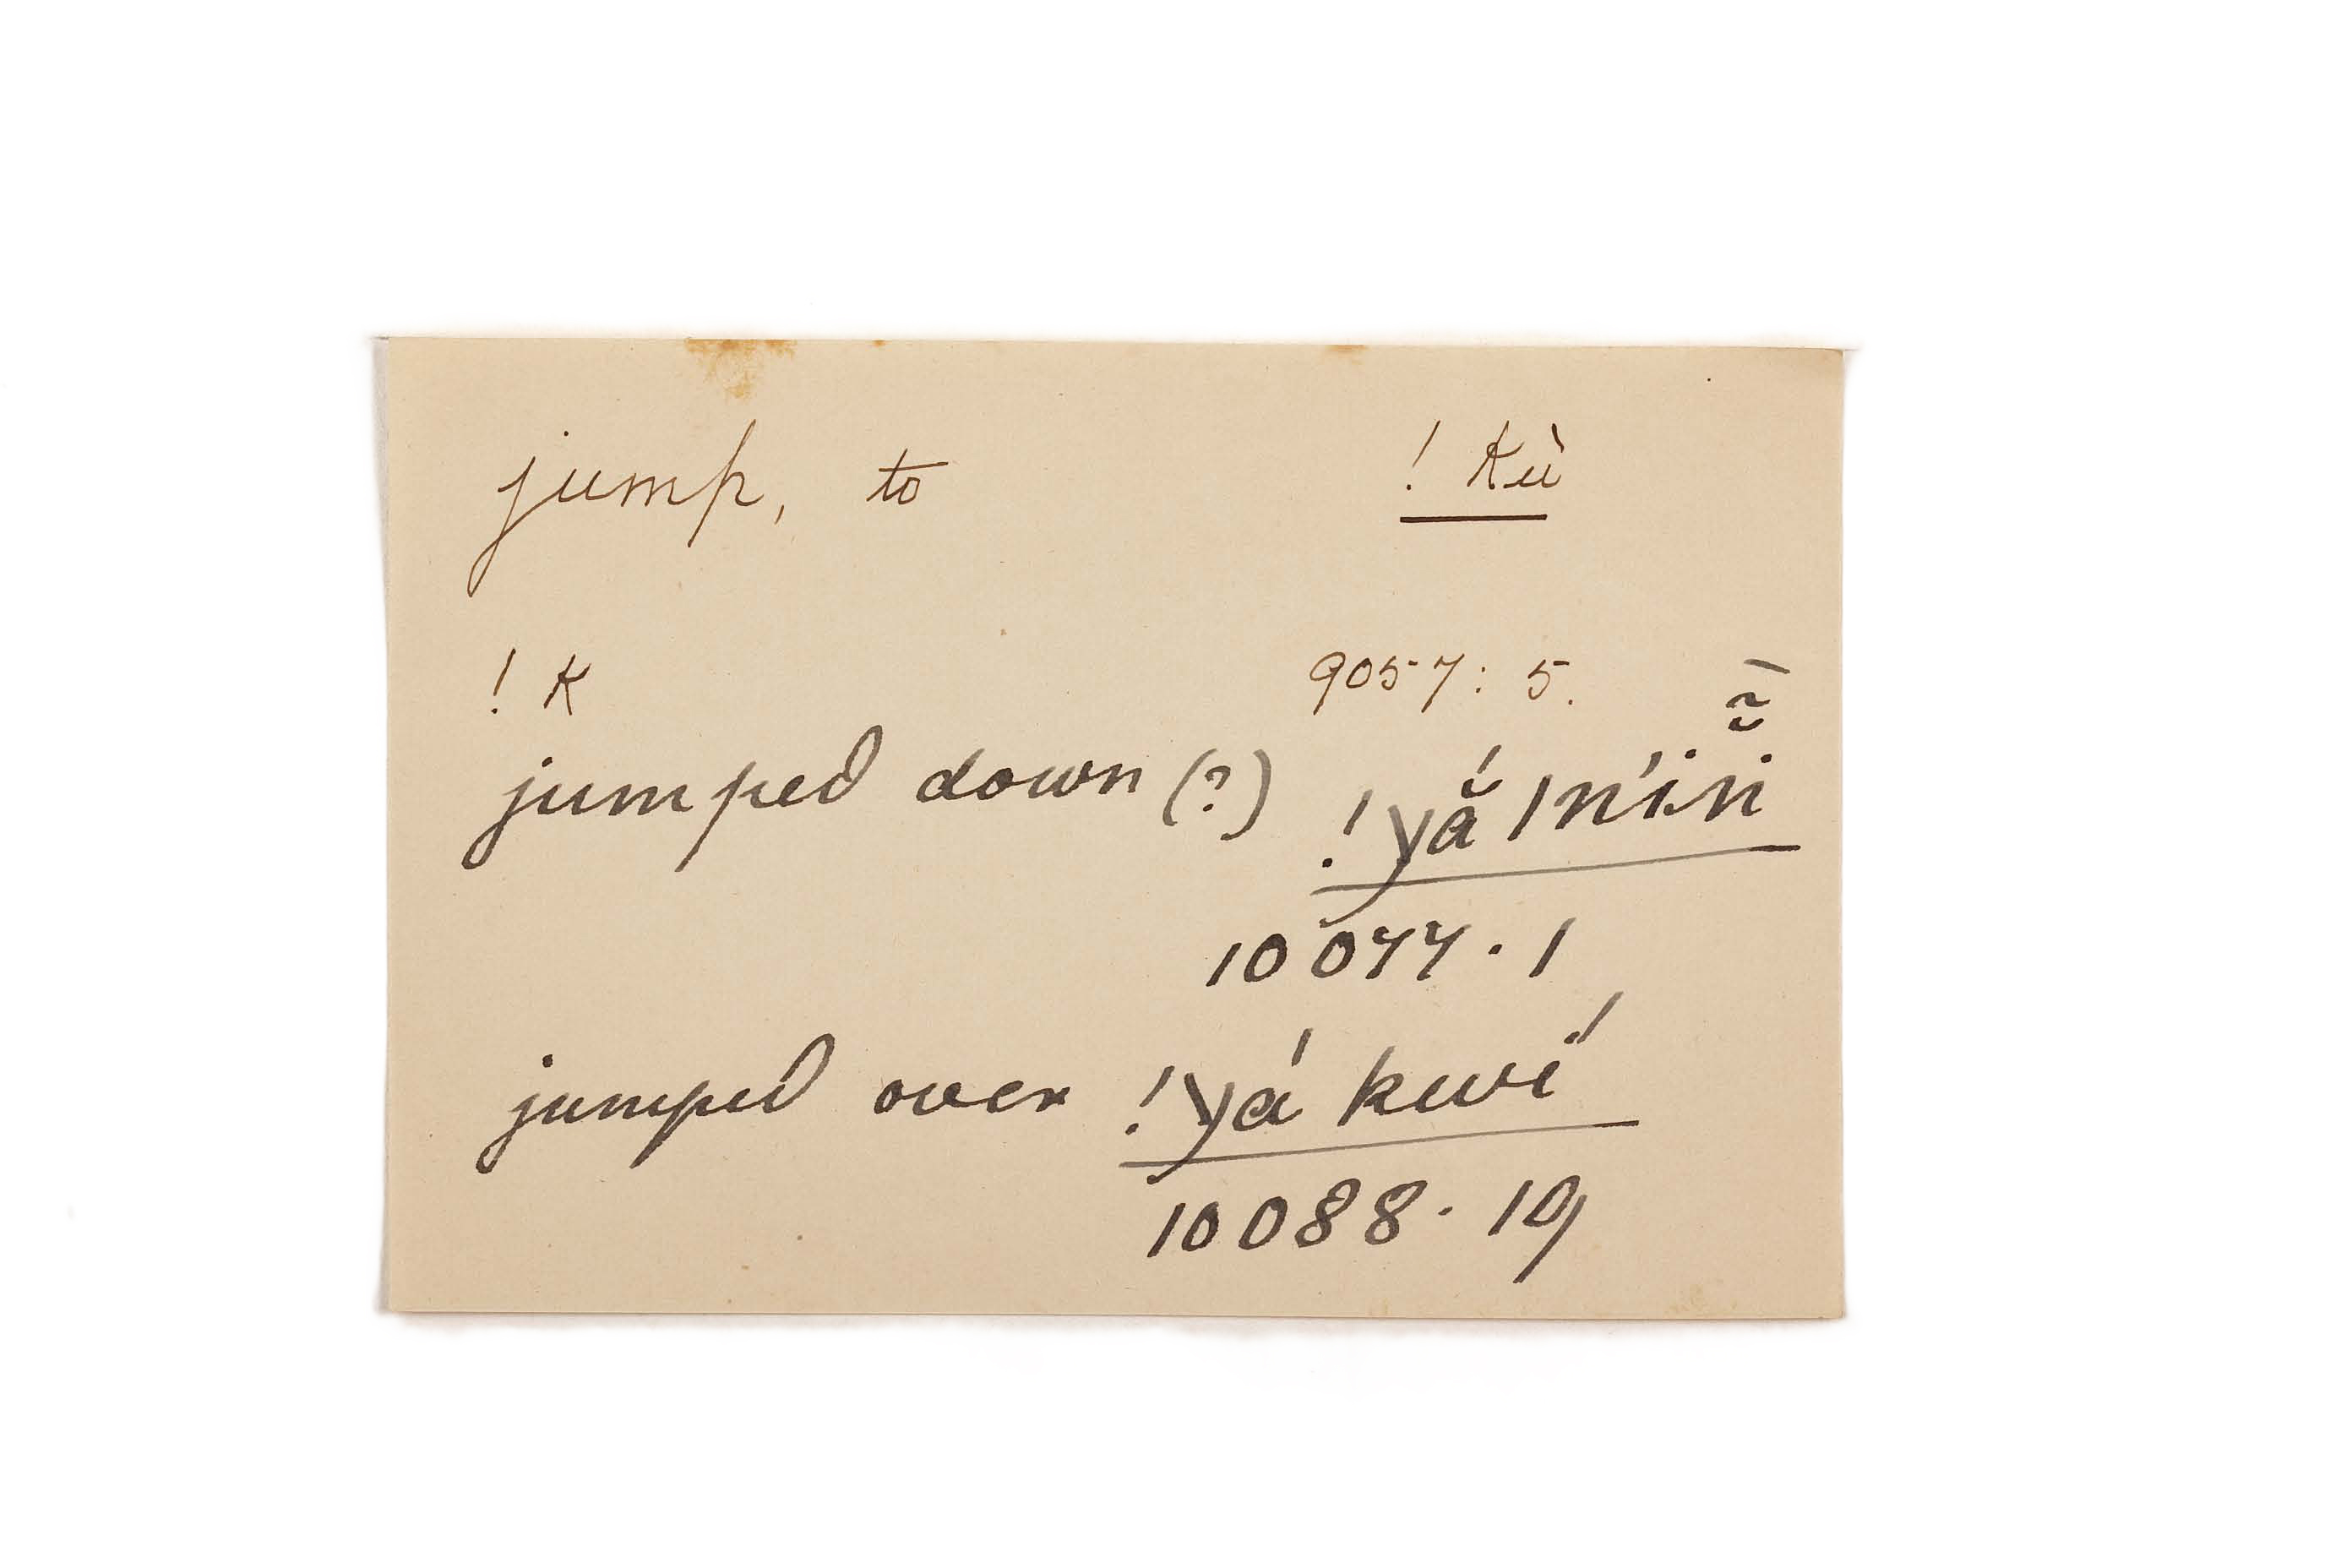 jump, to ! Kù
! K 9057 : 5.
jumped down (?) !yắ /n'in
10 077 . 1
jumped over !yá kwé
10 088 . 19